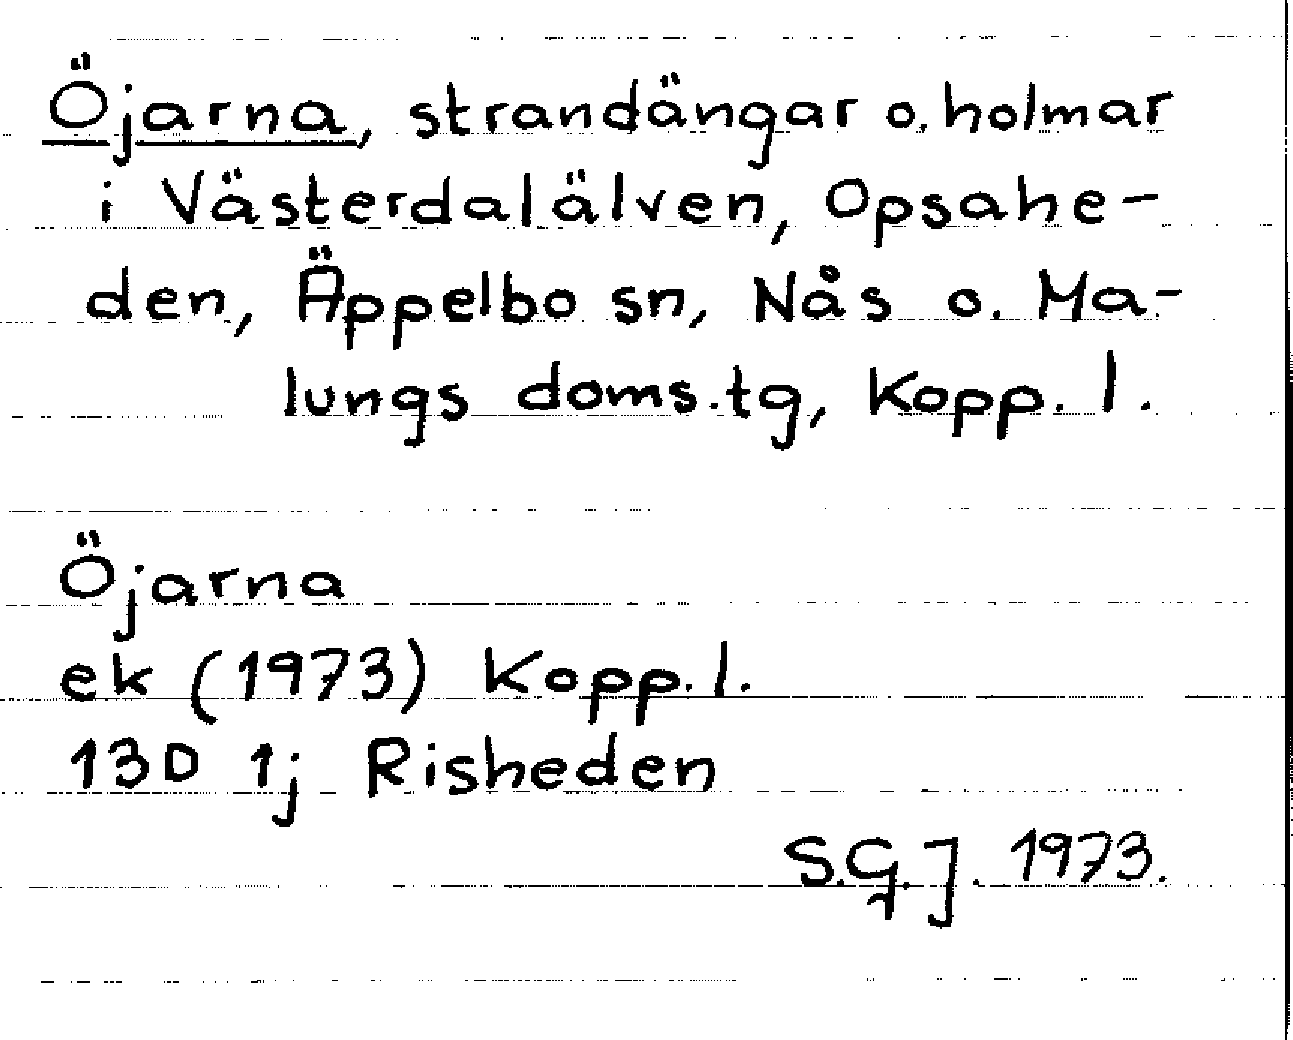 Öjarna, strandängar o. holmar
i Västerdalälven, Opsahe-
den, Äppelbo sn, Nås o. Ma-
lungs doms.tg, Kopp. l.
Öjarna
ek (1973) Kopp. l.
13D 1j Risheden
S.G.J. 1973.